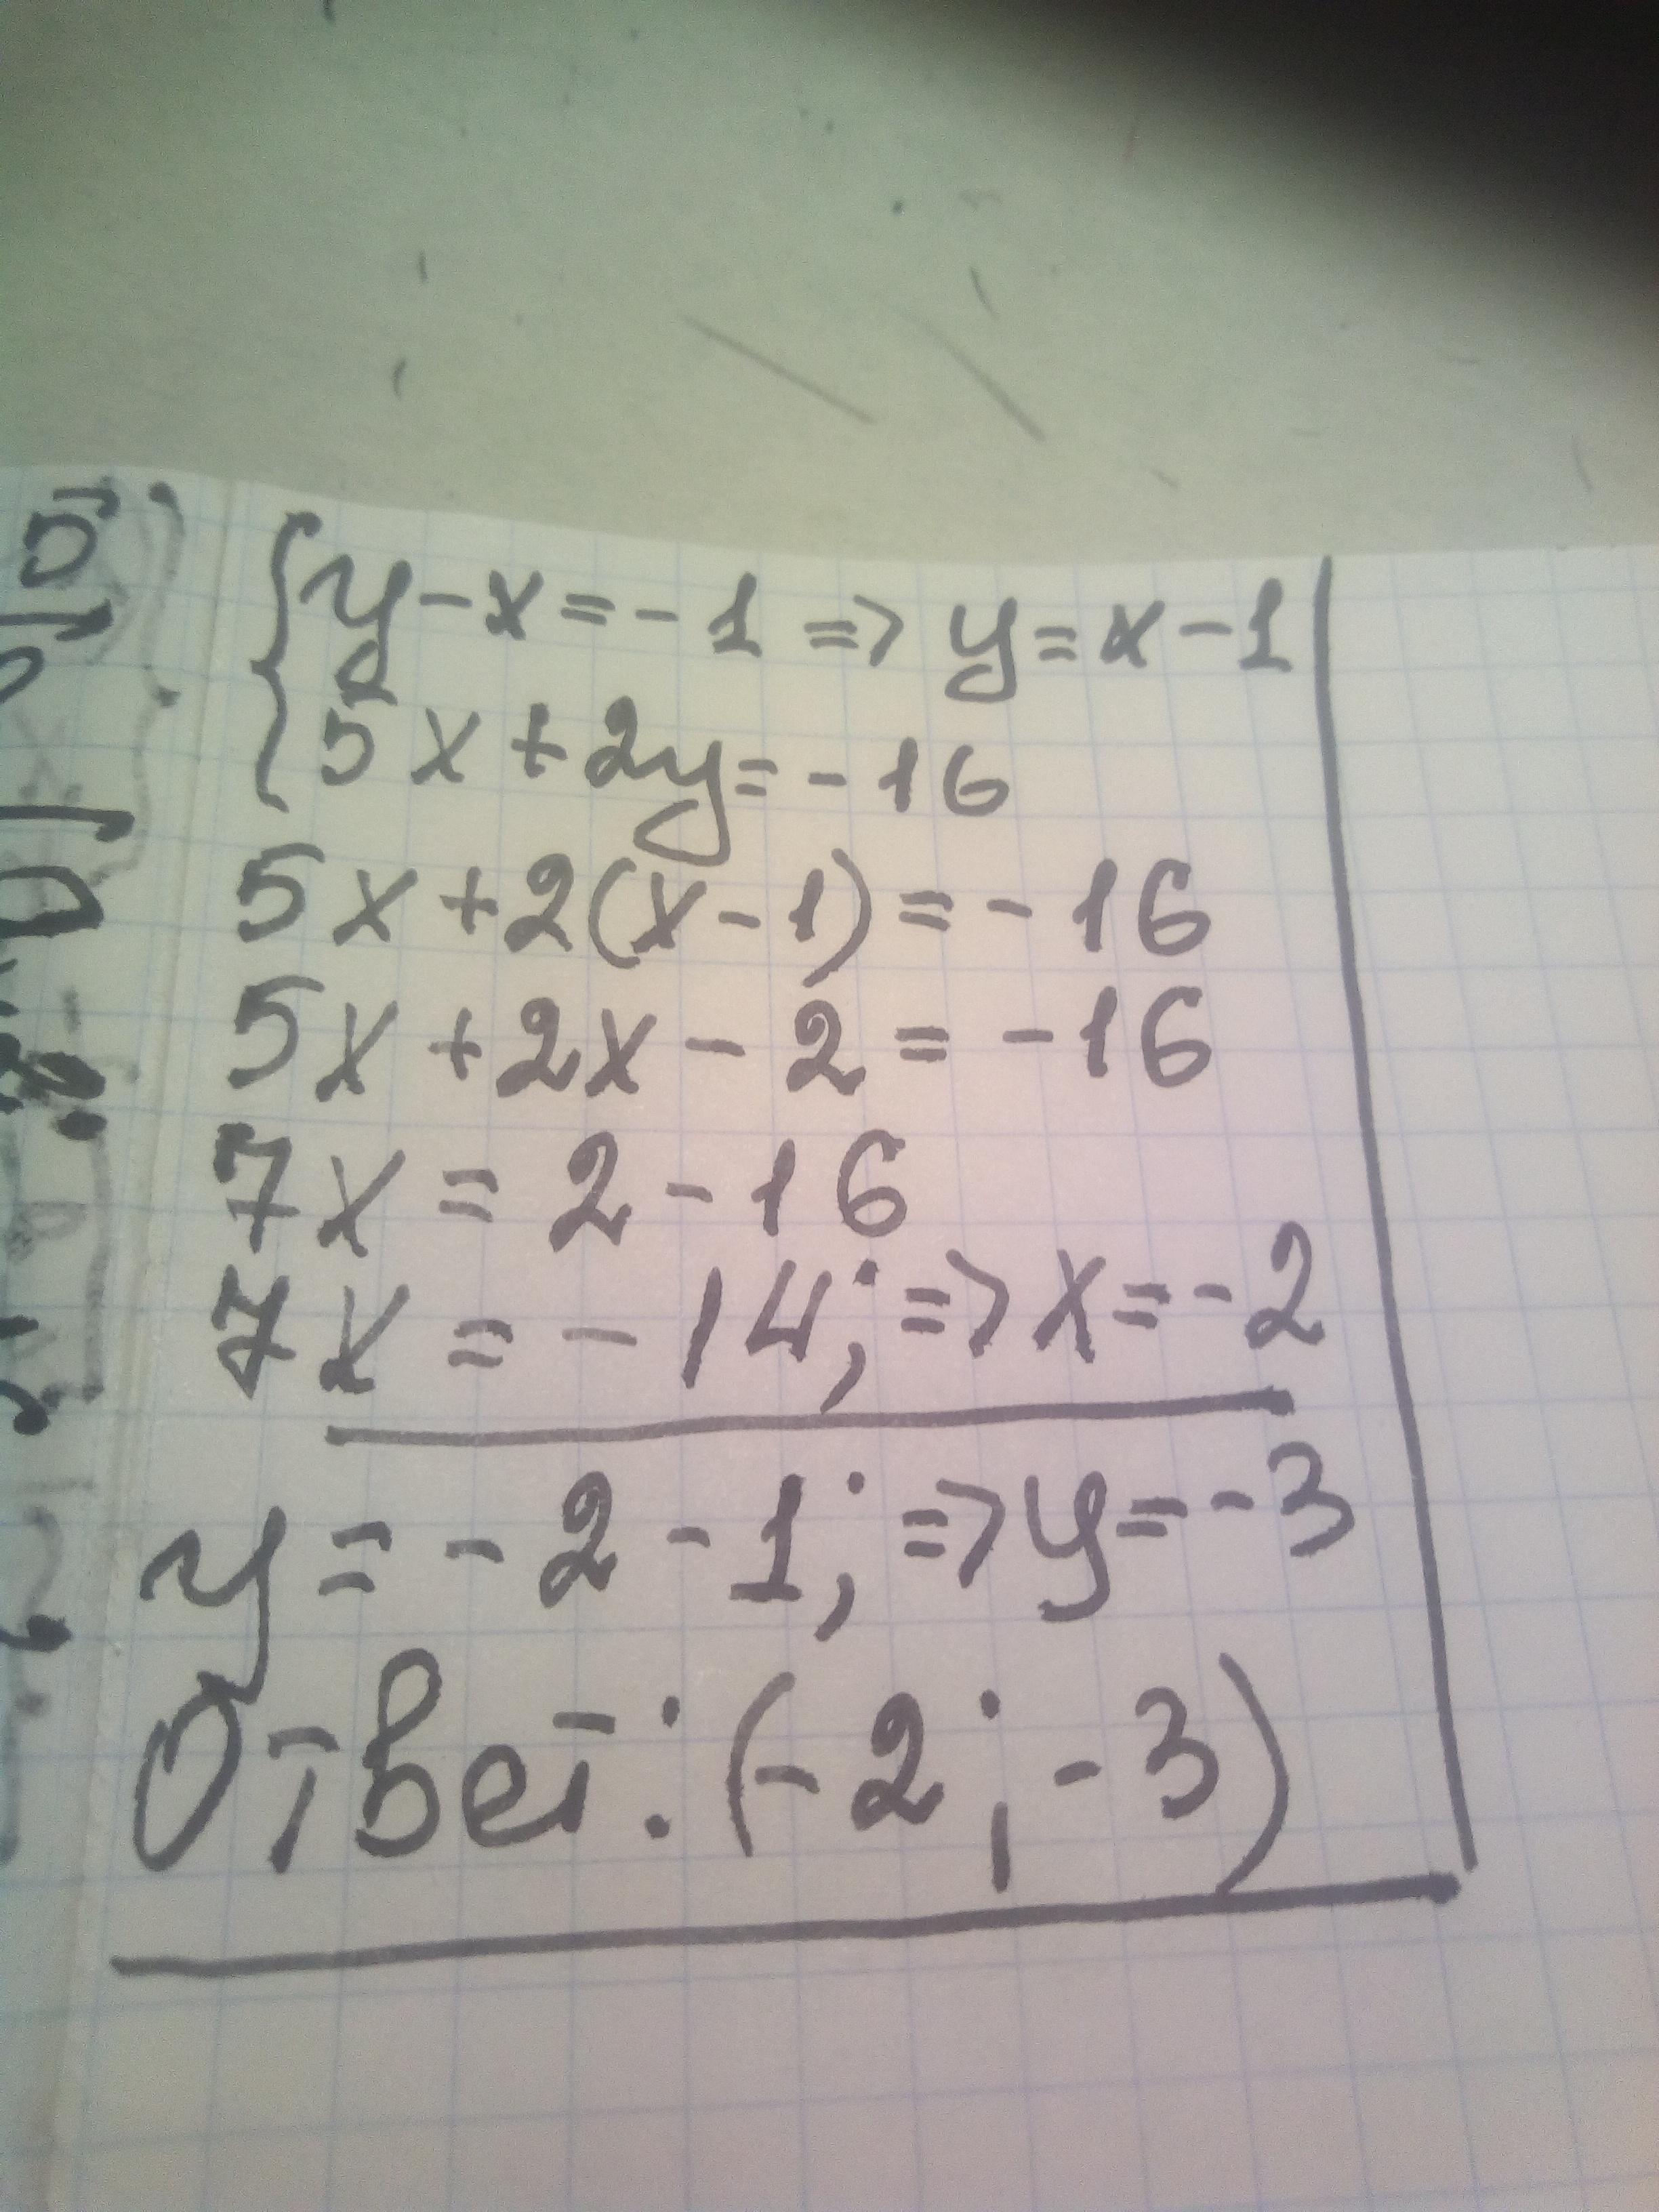 {y-x=-1 => y=x-1
5x+2y=-16
5x+2(x-1)=-16
5x+2x-2=-16
7x=2-16
7x=-14; => x=-2
y=-2-1; => y=-3
Ответ: (-2; -3)